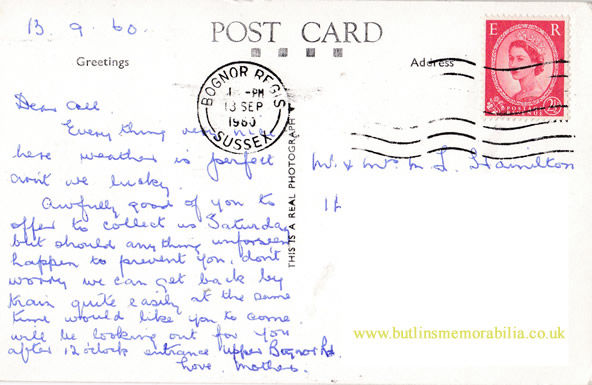 13.9.60
POST CARD
Greetings
Address
E R
BOGNOR REGIS
-PM
13 SEP
1960
SUSSEX
THIS IS A REAL PHOTOGRAPH
Dear all
Every thing very nice
here weather is perfect
arn't we lucky.
Awfully good of you to
offer to collect us Saturday
but should anything unforseen
happen to prevent you, don't
worry we can get back by
train quite easily at the same
time would like you to come
will be looking out for you
after 12 o'clock entrance upper Bognor Rd.
Love Mother.
Mr & Mrs M L Hamilton
www.butlinsmemorabilia.co.uk